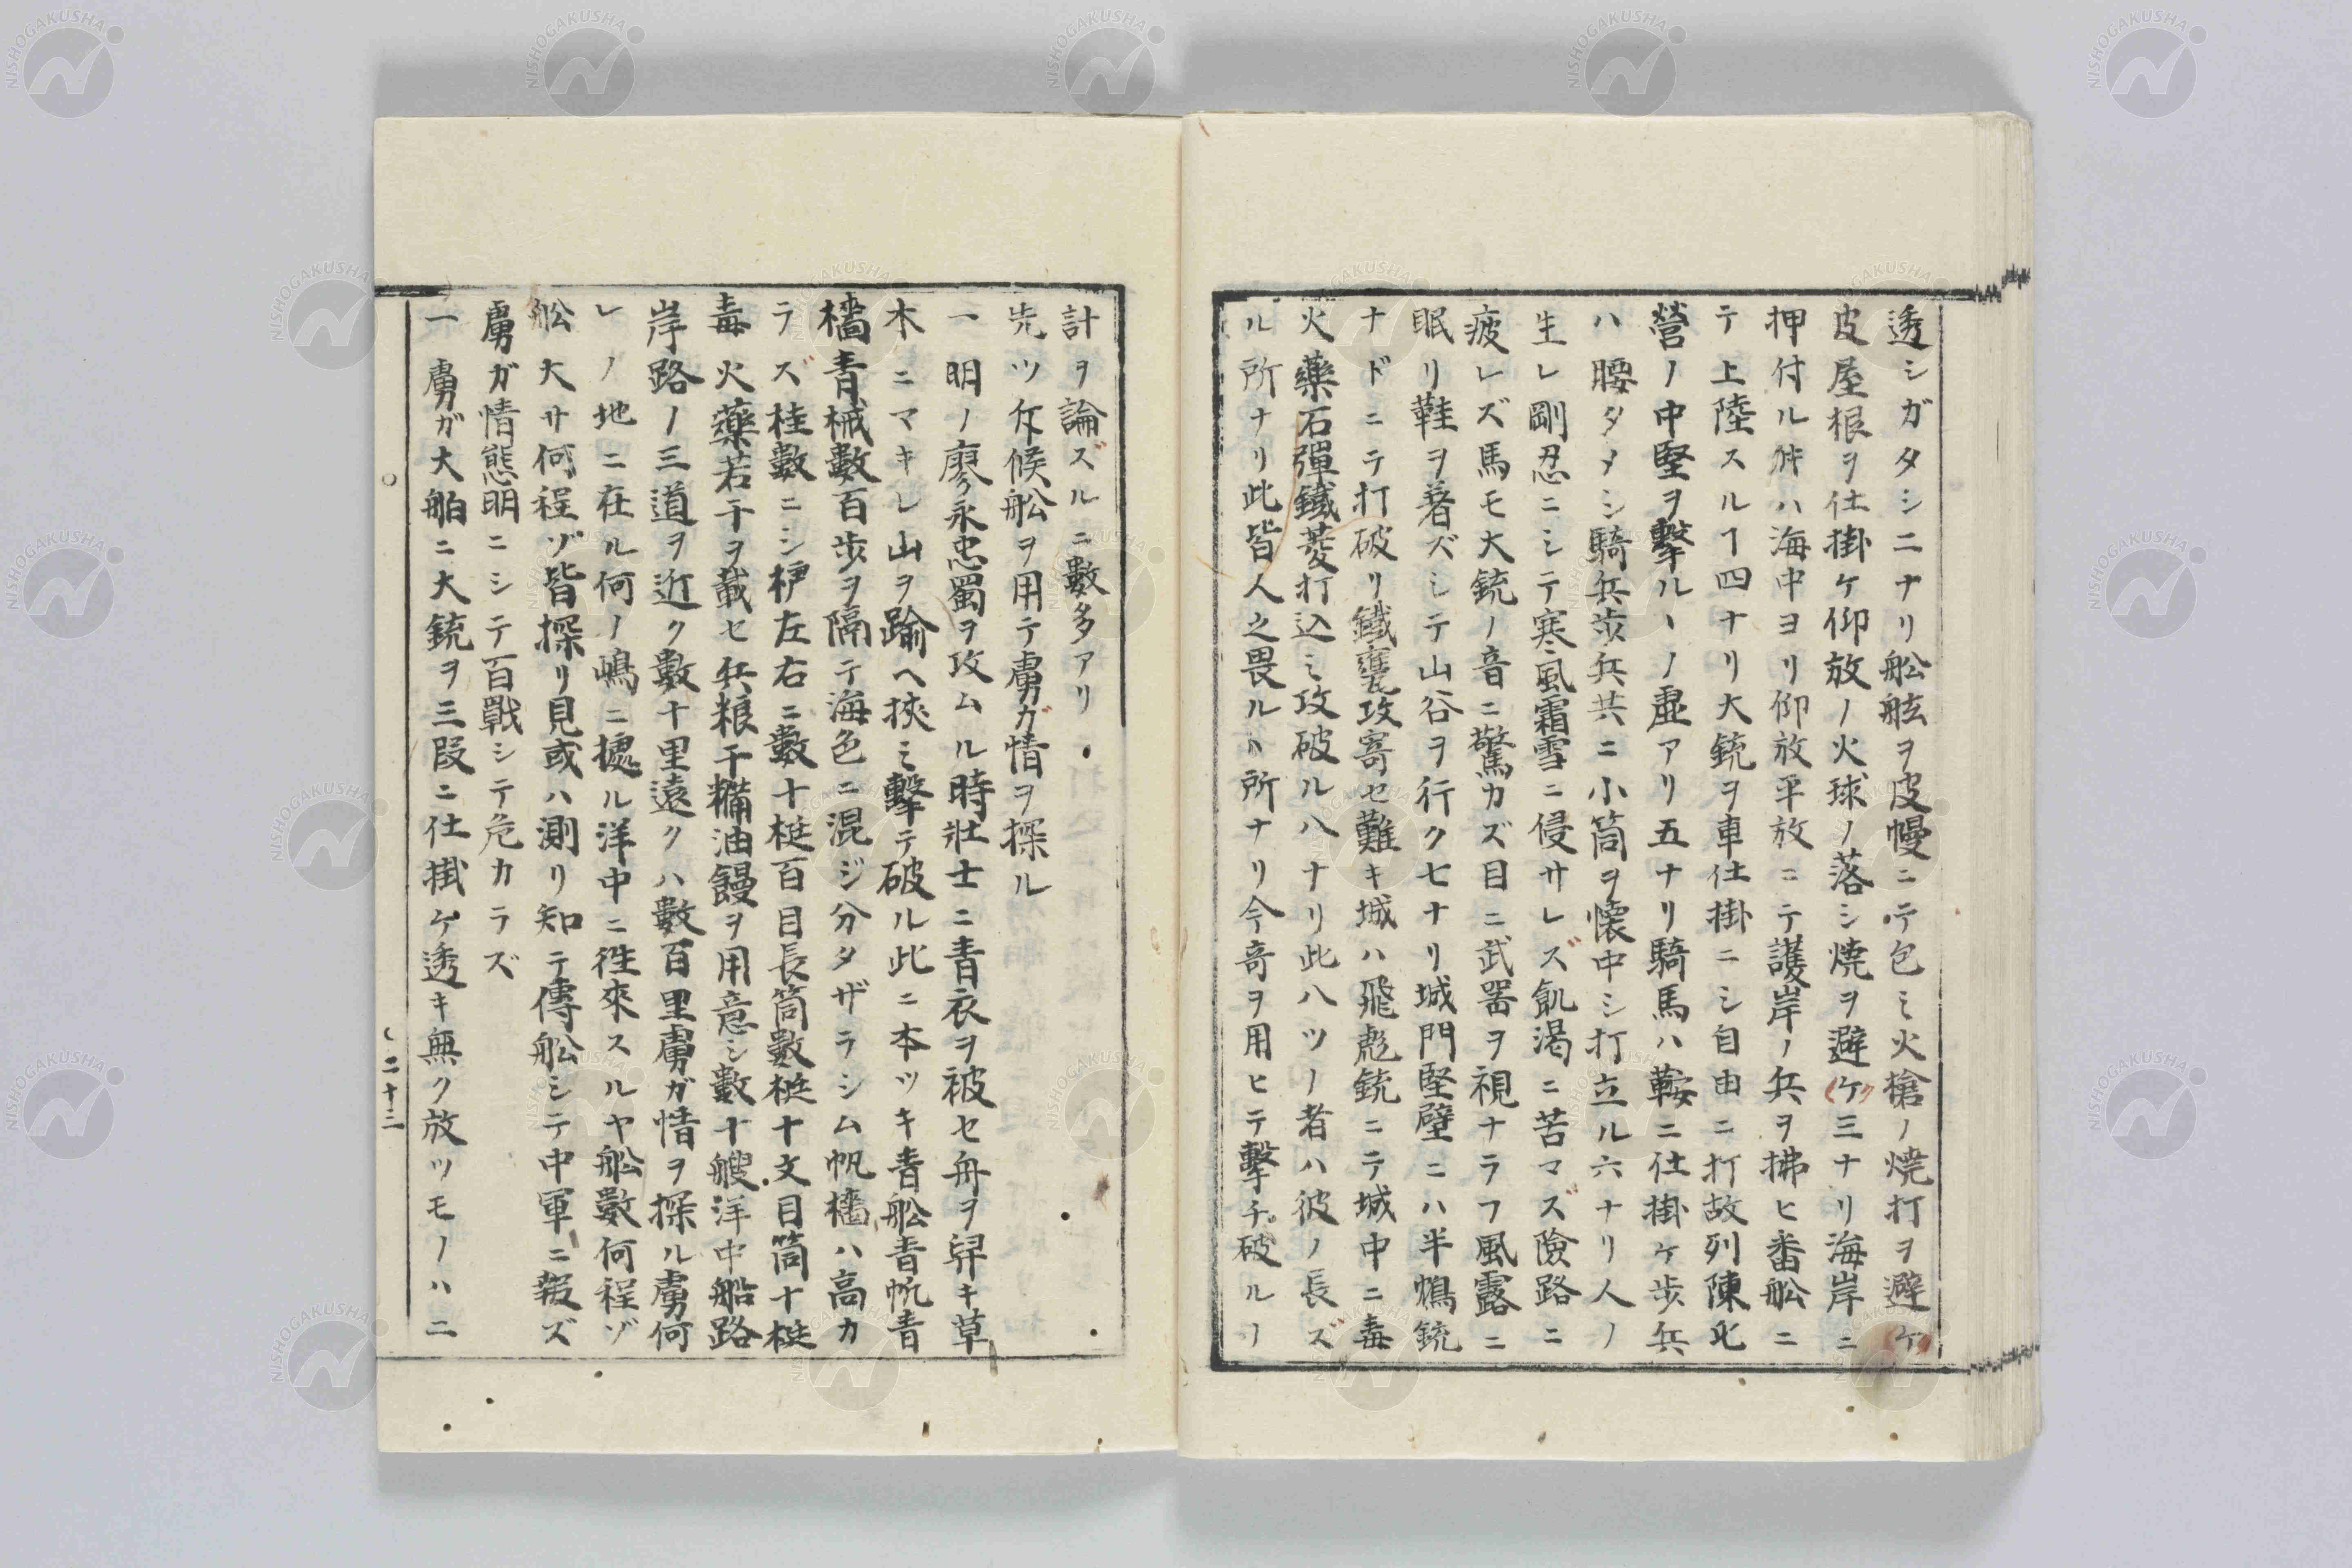 透シガタシ二ナリ舩舷ヲ皮幔ニテ包ミ火槍ノ焼打ヲ避ケ
皮屋根ヲ仕掛ケ仰放ノ火球ノ落シ焼ヲ避ケ三ナリ海岸ニ
押付ル時ハ海中ヨリ仰放平放ニテ護岸ノ兵ヲ拂ヒ番舩ニ
テ上陸スルヿ四ナリ大銃ヲ車仕掛ニシ自由ニ打故列陳
營ノ中堅ヲ擊ルヽノ虚アリ五ナリ騎馬ハ鞍ニ仕掛ケ歩兵
ハ腰タメシ騎兵歩兵共ニ小筒ヲ懐中シ打立ル六ナリ人ノ
生レ剛忍ニシテ寒風霜雪ニ侵サレズ飢渇ニ苦マズ險路ニ
疲レズ馬モ大銃ノ音ニ驚カズ目ニ武噐ヲ視ナラフ風露ニ
眠リ鞋ヲ着ズシテ山谷ヲ行ク七ナリ城門堅壁ニハ半鴆銃
ナドニテ打破リ鐵甕攻寄セ難キ城ハ飛彪銃ニテ城中ニ毒
火藥石彈鐵菱打込ミ攻破ル八ナリ此八ツノ者ハ彼ノ長ズ
ル所ナリ此皆人之畏ルヽ所ナリ今奇ヲ用ヒテ擊チ破ルノ
計ヲ論ズルニ數多アリ
先ツ斥候舩ヲ用テ虜ガ情ヲ探ル
一明ノ廖永忠蜀ヲ攻ムル時壯士ニ青衣ヲ被セ舟ヲ舁キ草
木ニマキレ山ヲ踰ヘ挾ミ擊テ破ル此ニ本ツキ青舩青帆青
檣青械數百歩ヲ隔テ海色ニ混ジ分タザラシム帆檣ハ高カ
ラズ桂數ニシ枦左右ニ數十梃百目長筒數梃十文目筒十梃
毒火藥若干ヲ載セ兵粮干糒油饅ヲ用意シ數十艘洋中船路
岸路ノ三道ヲ近ク數十里遠クハ數百里虜ガ情ヲ探ル虜何
レノ地ニ在ル何ノ嶋ニ據ル洋中ニ徃來スルヤ舩數何程ゾ
舩大サ何程ゾ皆探リ見或ハ測リ知テ傳舩シテ中軍ニ報ズ
虜ガ情態明ニシテ百戰シテ危カラズ
一虜ガ大舶ニ大銃ヲ三段ニ仕掛ケ透キ無ク放ツモノハ二
二十三